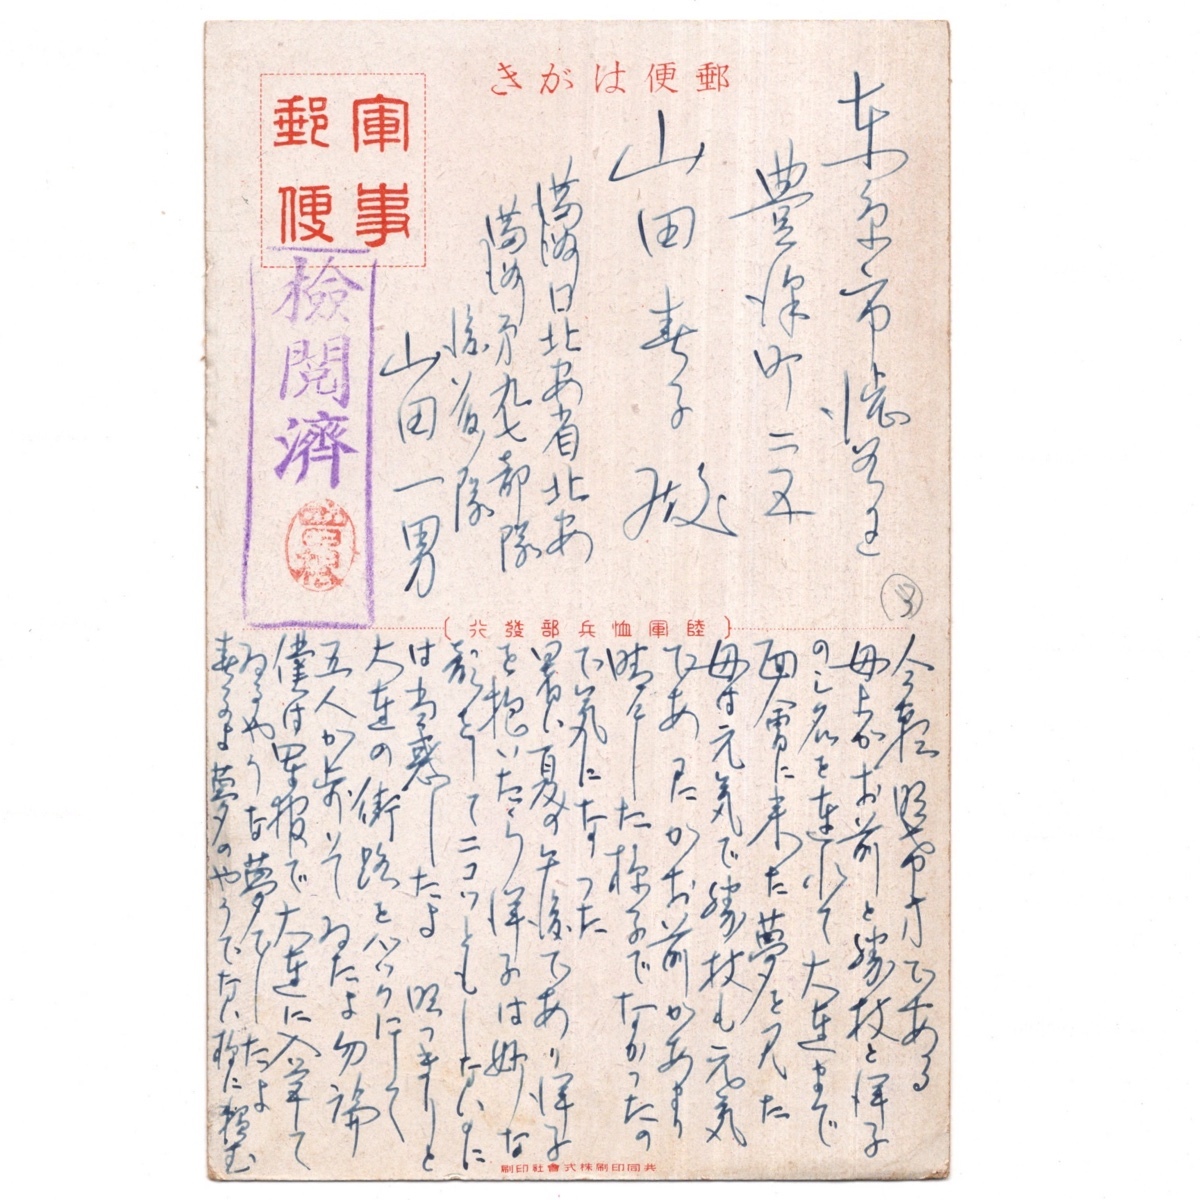 郵便はがき
軍事
郵便
検閲済
東京市渋谷区
豊澤町二五
山田春子殿
満洲国北安省北安
満洲第九七部隊
後益隊
山田一男
陸軍恤兵部發行
今朝 明け方である
母上がお前と勝枝と洋子
の三名を連れて大連まで
面會に来た夢を見た
母は元気で勝枝も元気
であ
たがお前があまり
晴々した様子でなかったの
で気になった
暑い夏の午後であり洋子
を抱いたら洋子は妙な
顔をしてニコッともしないに
は当惑したよ 明っきりと
大連の街路を
行て
五人が歩いて
ゐたよ勿論
僕は軍服で大連に入
て
ゐるやうな夢でしたよ
夢のやうでない様に
共同印刷株式會社印刷